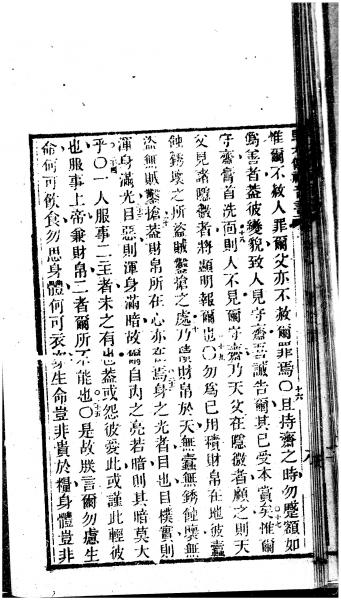 惟爾不赦人罪爾父亦不赦爾罪焉〇且持齋之時勿蹙額如
爲善者葢彼變貌致人見守齋吾誠告爾其已受本賞矣惟爾
守齋膏首洗面則人不見爾守齋乃天父在隱微者顧之則天
父見諸隱微者將顯明報爾也〇勿爲已用積財帛在地彼蠹
蝕銹壞之所盜賊鑿搶之處乃積財帛於天無蠹無銹蝕壞無
盜無賊鑿搶葢財帛所在心亦在焉身之光者目也目樸實則
渾身滿光目惡則渾身滿暗故爾自內之亮若暗則其暗莫大
乎〇一人服事二主者未之有也葢或怨彼愛此或謹此輕彼
也服事上帝兼財帛二者爾所不能也〇是故朕言爾勿慮生
命何可飲食勿思身體何可衣 生命豈非貴於糧身體豈非